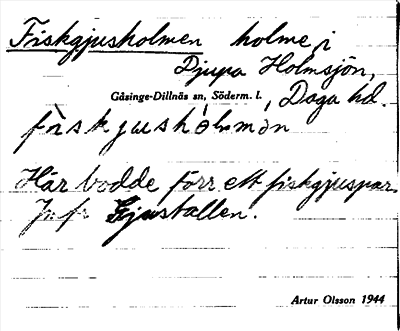 Fiskgjusholmen holme i
Djupa Holmsjön,
Gåsinge-Dillnäs sn, Söderm. l., Daga hd.
fiskgjushòlmən
Här bodde förr ett fiskgjuspar.
Jnfr Gjustallen.
Artur Olsson 1944